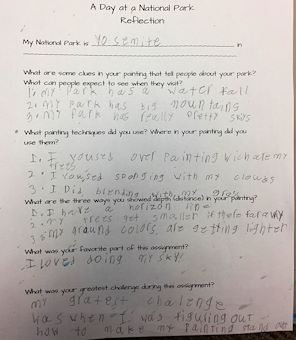 A Day at a National Park
Reflection
My National Park is Yosemite in
What are some clues in your painting that tell people about your park?
What can people expect to see when they visit?
1. my Park has a water fall
2. my park has big mountains
3. my park has really pretty skys
What painting techniques did you use? Where in your painting did you
use them?
1. I yoused over painting with are my
trees
2. I yoused sponging with my clouds
3. I Did blending with my grass
What are the three ways you showed depth (distance) in your painting?
1. I have a horizon line
2. my trees get smaller if there far away
3. my ground colors are getting lighter
What was your favorite part of this assignment?
I loved doing my sky!
What was your greatest challenge during this assignment?
my gratest chalenge
was when I was figuling out
how to make my painting stand out